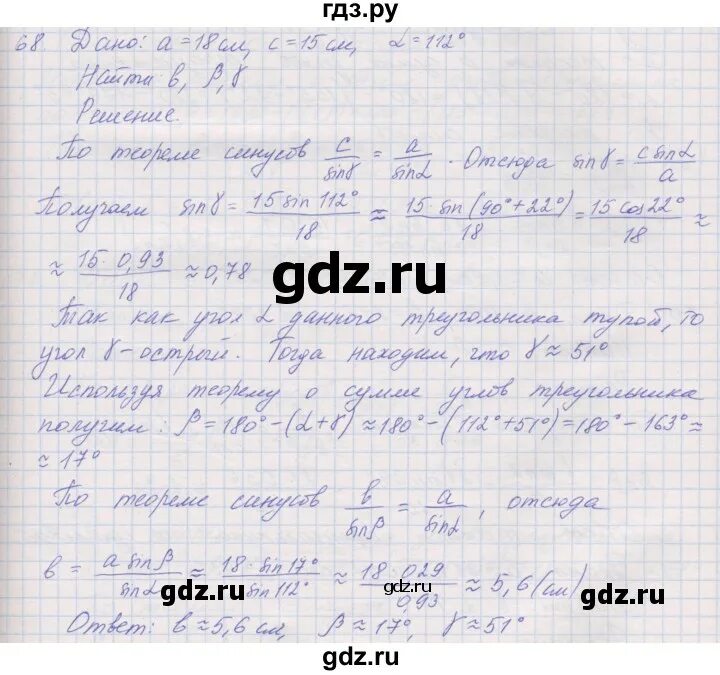 гдз.ру
68. Дано: a = 18 см, c = 15 см, α = 112°
Найти в, β, γ
Решение.
По теореме синусов c/sinγ = a/sinα. Отсюда sinγ = c sinα/a
Получаем sinγ = 15 sin 112°/18 ≈ 15 sin (90° + 22°)/18 = 15 cos 22°/18 ≈
≈ 15 · 0,93/18 ≈ 0,78
gdz.ru
Так как угол α данного треугольника тупой, то
угол γ - острый. Тогда находим, что γ ≈ 51°
Используя теорему о сумме углов треугольника
получим: β = 180° - (α + γ) ≈ 180° - (112° + 51°) = 180° - 163° ≈
≈ 17°
По теореме синусов в/sinβ = a/sinα, отсюда
в = a sinβ/sinα ≈ 18 · sin 17°/sin 112° ≈ 18 · 0,29/0,93 ≈ 5,6 (см)
gdz.ru gdz.ru gdz.ru
Ответ: в ≈ 5,6 см, β ≈ 17°, γ ≈ 51°
gdz.ru